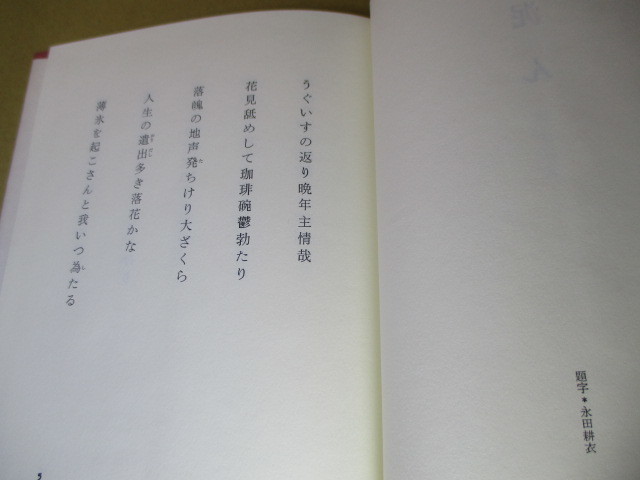 題字*永田耕衣
うぐいすの返り晩年主情哉
花見舐めして珈琲碗鬱勃たり
落魄の地声発ちけり大ざくら
人生の遣出多き落花かな
薄氷を起こさんと我いつ為たる